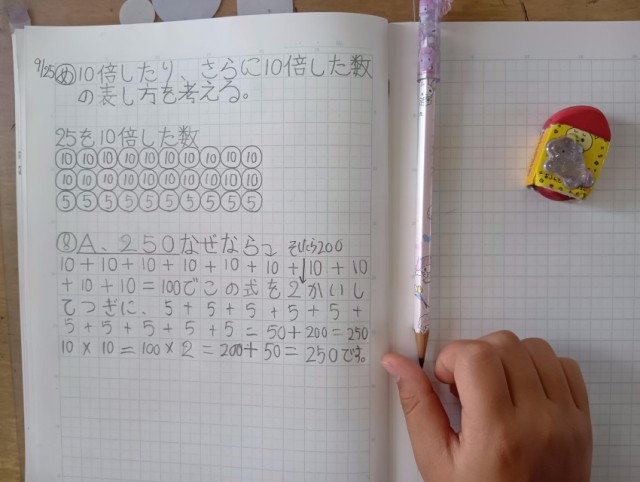 9/25 め 10倍したり、さらに10倍した数
の表し方を考える。
25を10倍した数
10 10 10 10 10 10 10 10 10 10
10 10 10 10 10 10 10 10 10 10
5 5 5 5 5 5 5 5 5 5
A、250なぜなら、 そしたら200
10+10+10+10+10+10+10+10
+10+10=100でこの式を2かいし
てつぎに、5+5+5+5+5+
5+5+5+5+5=50+200=250
10×10=100×2=200+50=250です。